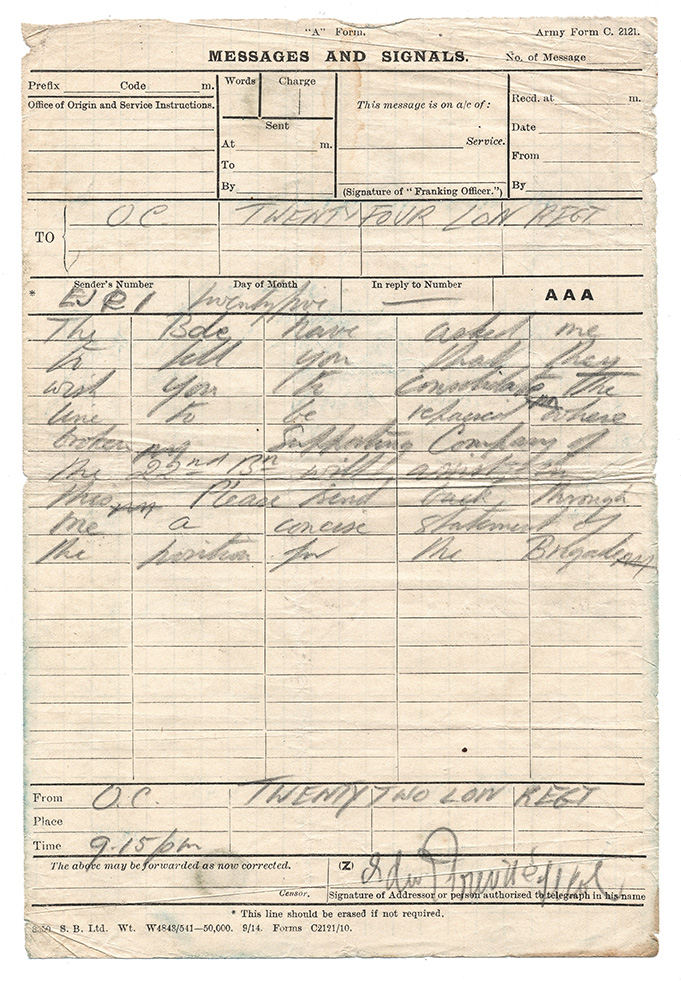 "A" Form. Army Form C. 2121.
MESSAGES AND SIGNALS. No. of Message
Prefix Code m. Words Charge
Office of Origin and Service Instructions. This message is on a/c of : Recd. at m.
Sent
At m. Service. Date
To From
By (Signature of "Franking Officer.") By
TO O.C. TWENTY FOUR LON REGT.
Sender's Number Day of Month In reply to Number
* twentyfive — AAA
The Bde have asked me
to tell you that they
wish you to consolidate the
line to be repaired where
broken Supporting Company of
the 22nd Bn will assist in
this Please send back through
me a concise statement of
the position for the Brigade
From O.C. TWENTY TWO LON REGT
Place
Time 9.15 pm
The above may be forwarded as now corrected. (Z)
Censor. Signature of Addressor or person authorised to telegraph in his name
* This line should be erased if not required.
S. B. Ltd. Wt. W4843/541—50,000. 9/14. Forms C2121/10.